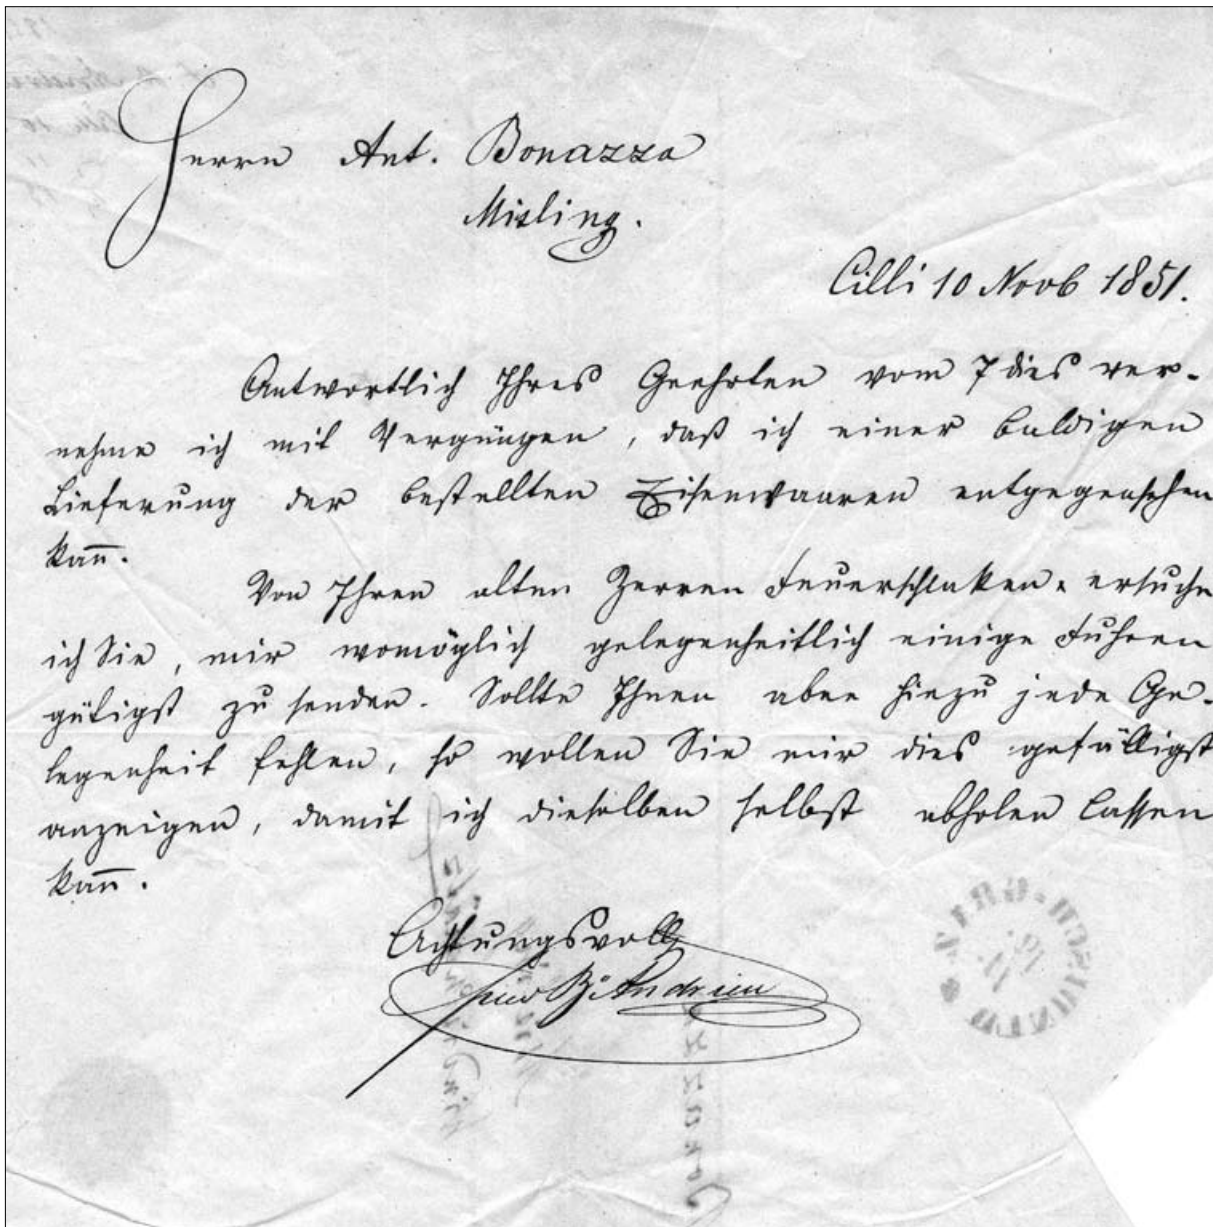 Herrn Ant. Bonazza
Misling.
Cilli 10 Novb 1851.
Antwortlich Ihres Geehrten vom 7 dies ver-
nehme ich mit Vergnügen, daß ich einer baldigen
Lieferung der bestellten Eisenwaaren entgegensehen
kan̄.
Von Ihren alten Zerren Feuerschlaken ersuche
ich Sie, mir womöglich gelegenheitlich einige Fuhren
gütigst zu senden. Sollte Ihnen aber hiezu jede Ge-
legenheit fehlen, so wollen Sie mir dies gefälligst
anzeigen, damit ich dieselben selbst abholen lassen
kan̄.
Achtungsvoll
Andrieu
WINDISCH-GRATZ